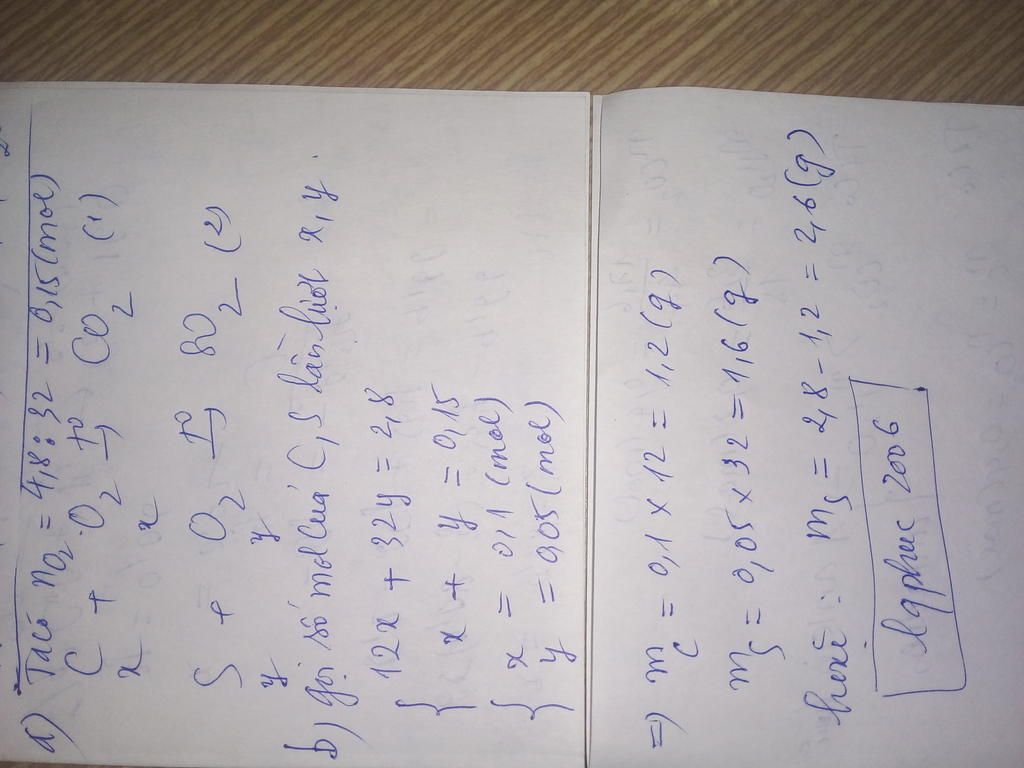 a) Ta có nO2 = 4,8 : 32 = 0,15 (mol)
C + O2 -t°-> CO2 (1)
x x
S + O2 -t°-> SO2 (2)
y y
b) gọi số mol của C, S lần lượt x, y.
{ 12x + 32y = 2,8
x + y = 0,15
{ x = 0,1 (mol)
y = 0,05 (mol)
=> mC = 0,1 x 12 = 1,2 (g)
mS = 0,05 x 32 = 1,6 (g)
hoặc : mS = 2,8 - 1,2 = 2,6 (g)
2006